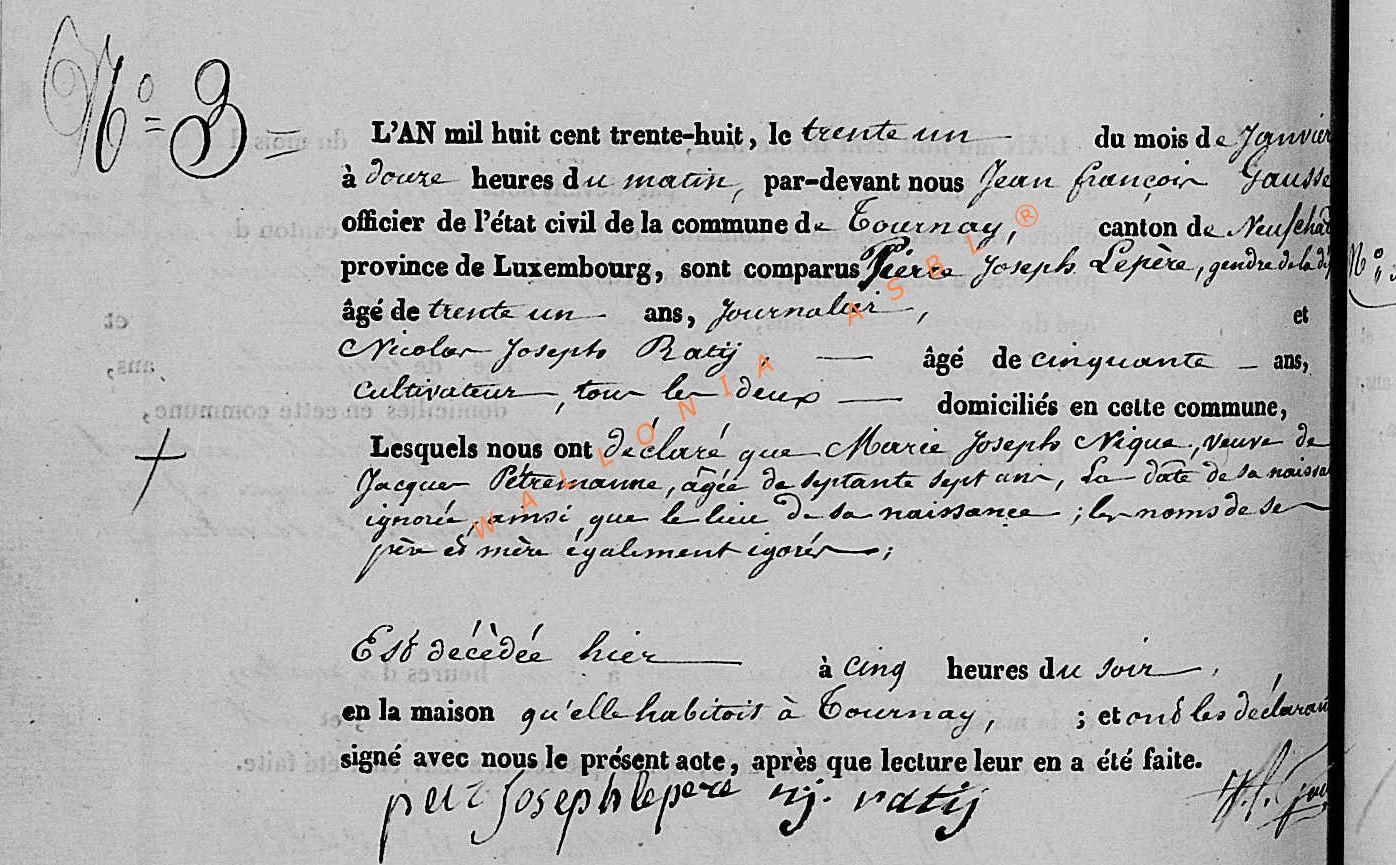 N° = 3 =
L'AN mil huit cent trente-huit, le trente un du mois de Janvier
à douze heures du matin, par-devant nous Jean françois Gausse
officier de l'état civil de la commune de Tournay, canton de Neufchat
province de Luxembourg, sont comparus Pierre Joseph Lepère, gendre de la dé
âgé de trente un ans, Journalier, et
Nicolas Joseph Ratij, âgé de cinquante ans,
Cultivateur, tous les deux domiciliés en cette commune,
Lesquels nous ont déclaré que Marie Joseph Nique, veuve de
Jacques Pétremanne, âgée de septante sept ans, La date de sa naissa
ignorée, ainsi que le lieu de sa naissance ; les noms de ses
père et mère également igorés ;
Est décèdée hier à cinq heures du soir,
en la maison qu'elle habitois à Tournay, ; et ont les déclarant
signé avec nous le présent acte, après que lecture leur en a été faite.
Joseph lepere nj. ratij
WALLONIA ASBL ®
N°